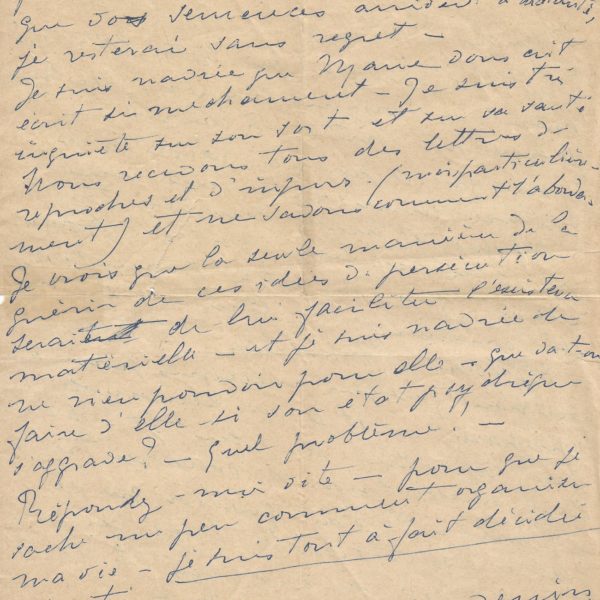 que vos semences arrident à
je resterai sans regret —
Je suis navrée que Marie vous ait
écrit si méchamment — Je suis très
inquiète sur son sort et sur sa santé
Nous recevons tous des lettres de
reproches et d'injures. (moi particulière-
ment) et ne savons comment l'aborder
Je crois que la seule manière de la
guérir de ces idées de persécution
serait de lui faciliter l'existence
matérielle — et je suis navrée de
ne rien pouvoir pour elle — que va-t-on
faire d'elle si son état psychique
s'aggrave? — Quel problème!! —
Répondez-moi vite — pour que je
sache un peu comment organiser
ma vie — je suis tout à fait décidée